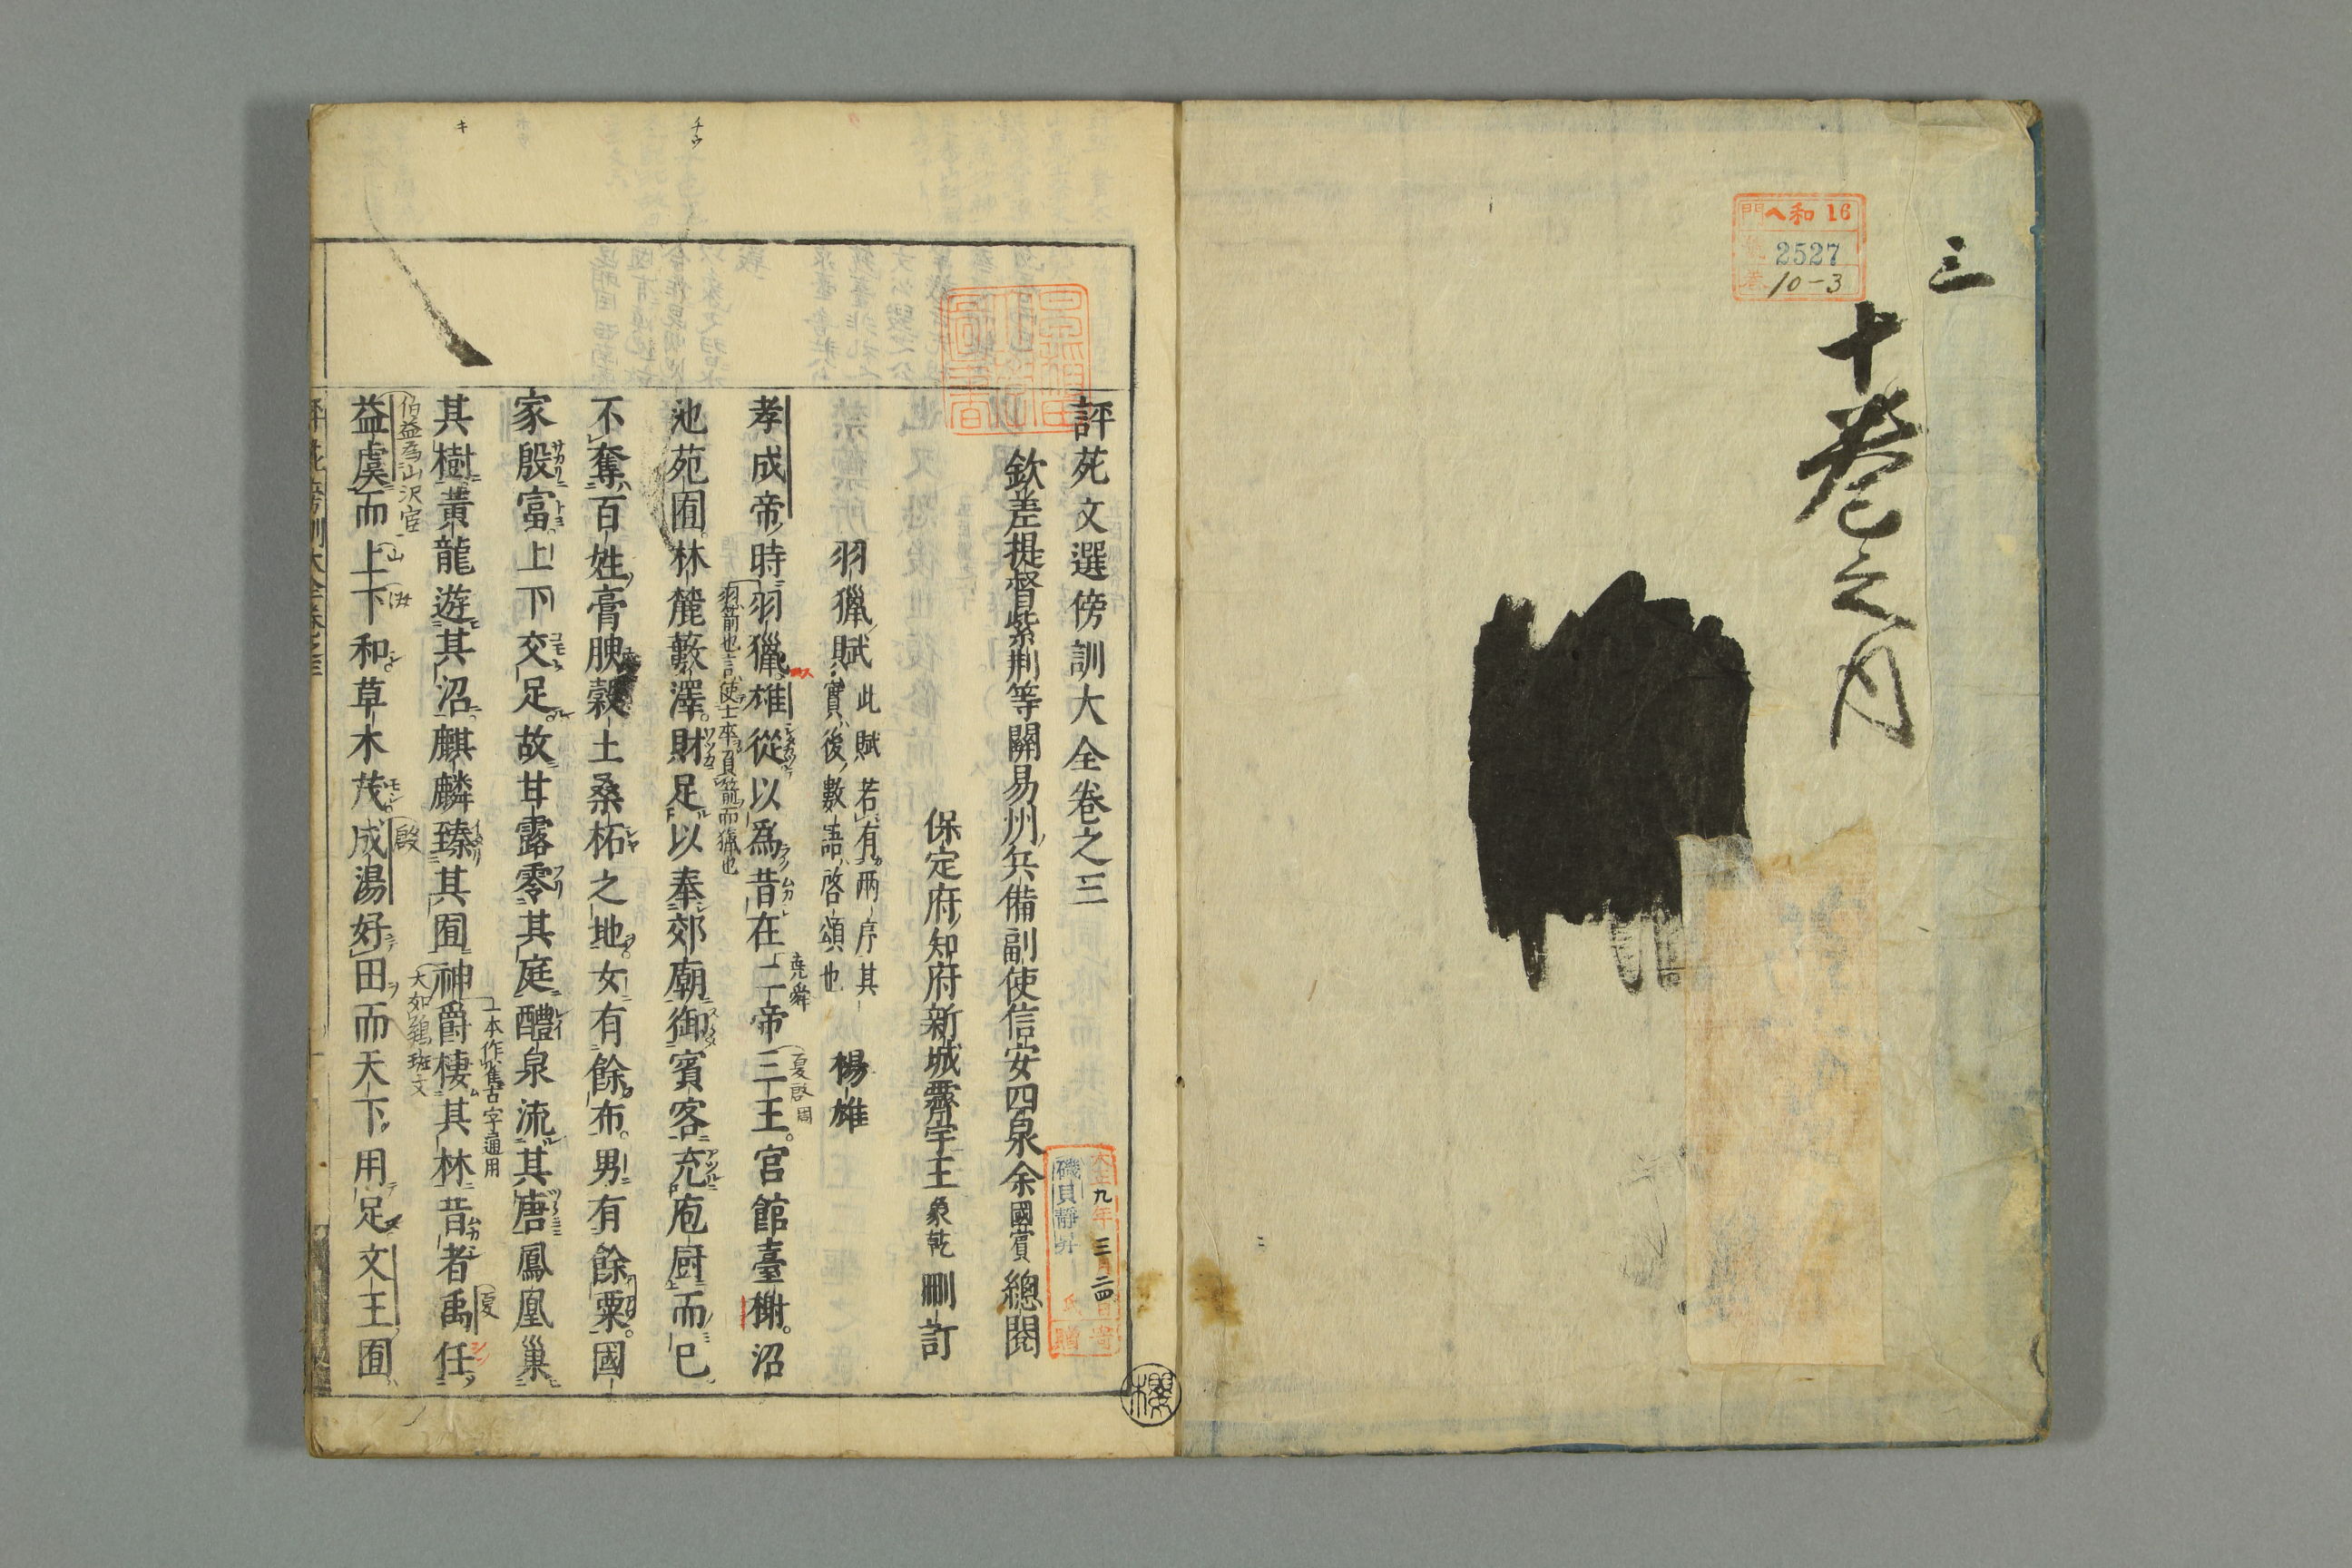 三
十巻之内
門 ヘ和16
號 2527
巻 10-3
評苑文選傍訓大全卷之三
欽差提督紫荆等關易州兵備副使信安四泉余國賓總閲
保定府知府新城霽宇王象乾刪訂
羽獵賦 此賦若有兩序其實後數語啓頌也 楊雄
孝成帝時羽獵雄從以爲昔在二帝三王官館臺榭沼
堯舜
夏啓周
羽箭也言使士卒負箭而獵也
池苑囿林麓藪澤財足以奉郊廟御賓客充庖厨而已
不奪百姓膏腴穀土桑柘之地女有餘布男有餘粟國
家殷富上下交足故甘露零其庭醴泉流其唐鳳凰巢
一本作雀古字通用
其樹黄龍遊其沼麒麟臻其囿神爵棲其林昔者禹任
夏
大如鷄斑文
伯益爲山沢官
益虞而上下和草木茂成湯好田而天下用足文王囿
山
殷
大正九年三月二四日寄贈
磯貝靜 氏
櫻